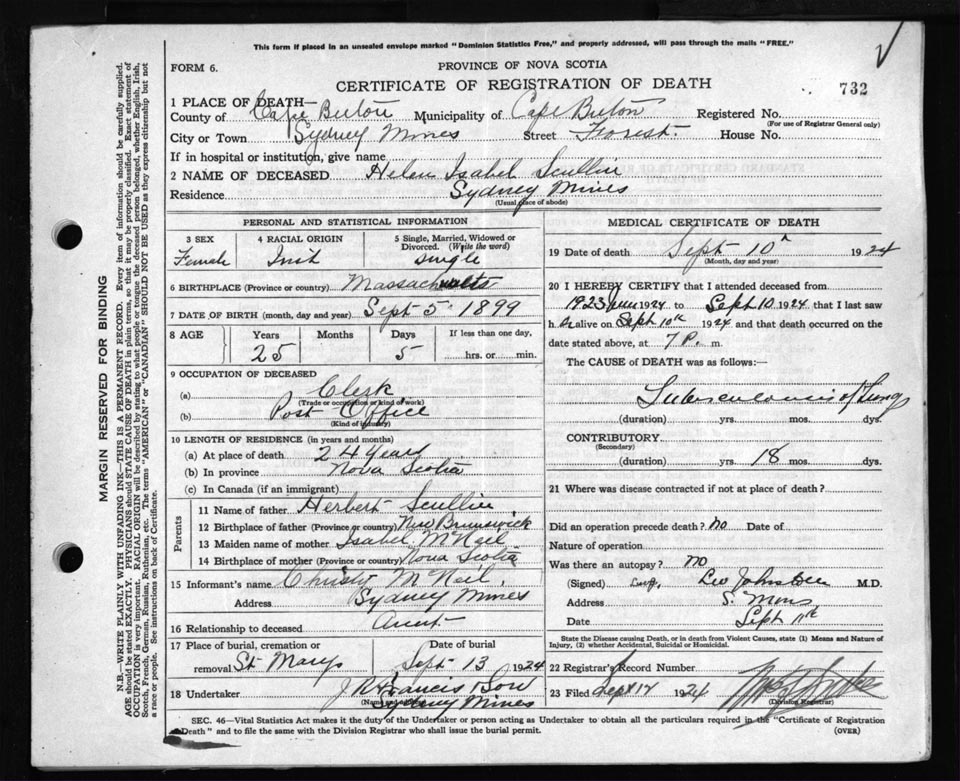 This form if placed in an unsealed envelope marked "Dominion Statistics Free," and properly addressed, will pass through the mails "FREE."
FORM 6.
PROVINCE OF NOVA SCOTIA
CERTIFICATE OF REGISTRATION OF DEATH
732
1 PLACE OF DEATH—
County of Cape Breton Municipality of Cape Breton Registered No.
(For use of Registrar General only)
City or Town Sydney Mines Street Forest House No.
If in hospital or institution, give name
2 NAME OF DECEASED Helen Isabel Scullin
Residence Sydney Mines
(Usual place of abode)
PERSONAL AND STATISTICAL INFORMATION
3 SEX 4 RACIAL ORIGIN 5 Single, Married, Widowed or Divorced. (Write the word)
Female Irish single
6 BIRTHPLACE (Province or country) Massachusetts
7 DATE OF BIRTH (month, day and year) Sept 5 1899
8 AGE Years Months Days If less than one day,
25 5 hrs. or min.
9 OCCUPATION OF DECEASED
(a) Clerk
(Trade or occupation or kind of work)
(b) Post Office
(Kind of industry)
10 LENGTH OF RESIDENCE (in years and months)
(a) At place of death 24 years
(b) In province Nova Scotia
(c) In Canada (if an immigrant)
Parents
11 Name of father Herbert Scullin
12 Birthplace of father (Province or country) New Brunswick
13 Maiden name of mother Isabel McNeil
14 Birthplace of mother (Province or country) Nova Scotia
15 Informant's name Christy McNeil,
Address Sydney Mines
16 Relationship to deceased Aunt
17 Place of burial, cremation or removal St Marys Date of burial Sept 13 1924
18 Undertaker J R Francis & Son
Sydney Mines
MEDICAL CERTIFICATE OF DEATH
19 Date of death Sept 10 1924
(Month, day and year)
20 I HEREBY CERTIFY that I attended deceased from
1923 1924 to Sept 10 1924 that I last saw
h er alive on Sept 10th 1924 and that death occurred on
date stated above, at 7 P. m.
The CAUSE of DEATH was as follows:
Tuberculousis of Lung
(duration) yrs. mos. dys.
CONTRIBUTORY
(Secondary)
(duration) yrs. 18 mos. dys.
21 Where was disease contracted if not at place of death?
Did an operation precede death? no Date of
Nature of operation
Was there an autopsy? no
(Signed) M.D.
Address S. Mines
Date Sept 11th
State the Disease causing Death, or in death from Violent Causes, state (1) Means and Nature of Injury, (2) whether Accidental, Suicidal or Homicidal.
22 Registrar's Record Number
23 Filed Sept 12 1924
(Division Registrar)
SEC. 46—Vital Statistics Act makes it the duty of the Undertaker or person acting as Undertaker to obtain all the particulars required in the "Certificate of Registration
of Death" and to file the same with the Division Registrar who shall issue the burial permit. (OVER)
MARGIN RESERVED FOR BINDING
N.B.—WRITE PLAINLY WITH UNFADING INK—THIS IS A PERMANENT RECORD. Every item of information should be carefully supplied.
AGE should be stated EXACTLY. PHYSICIANS should STATE CAUSE OF DEATH in plain terms, so that it may be properly classified. Exact statement of
OCCUPATION is very important. RACIAL ORIGIN will be described by stating to what people or tongue the deceased person belonged, whether English, Irish,
Scotch, French, German, Russian, Ruthenian, etc. The terms "AMERICAN" or "CANADIAN" SHOULD NOT BE USED as they express citizenship but not
a race or people. See instructions on back of Certificate.